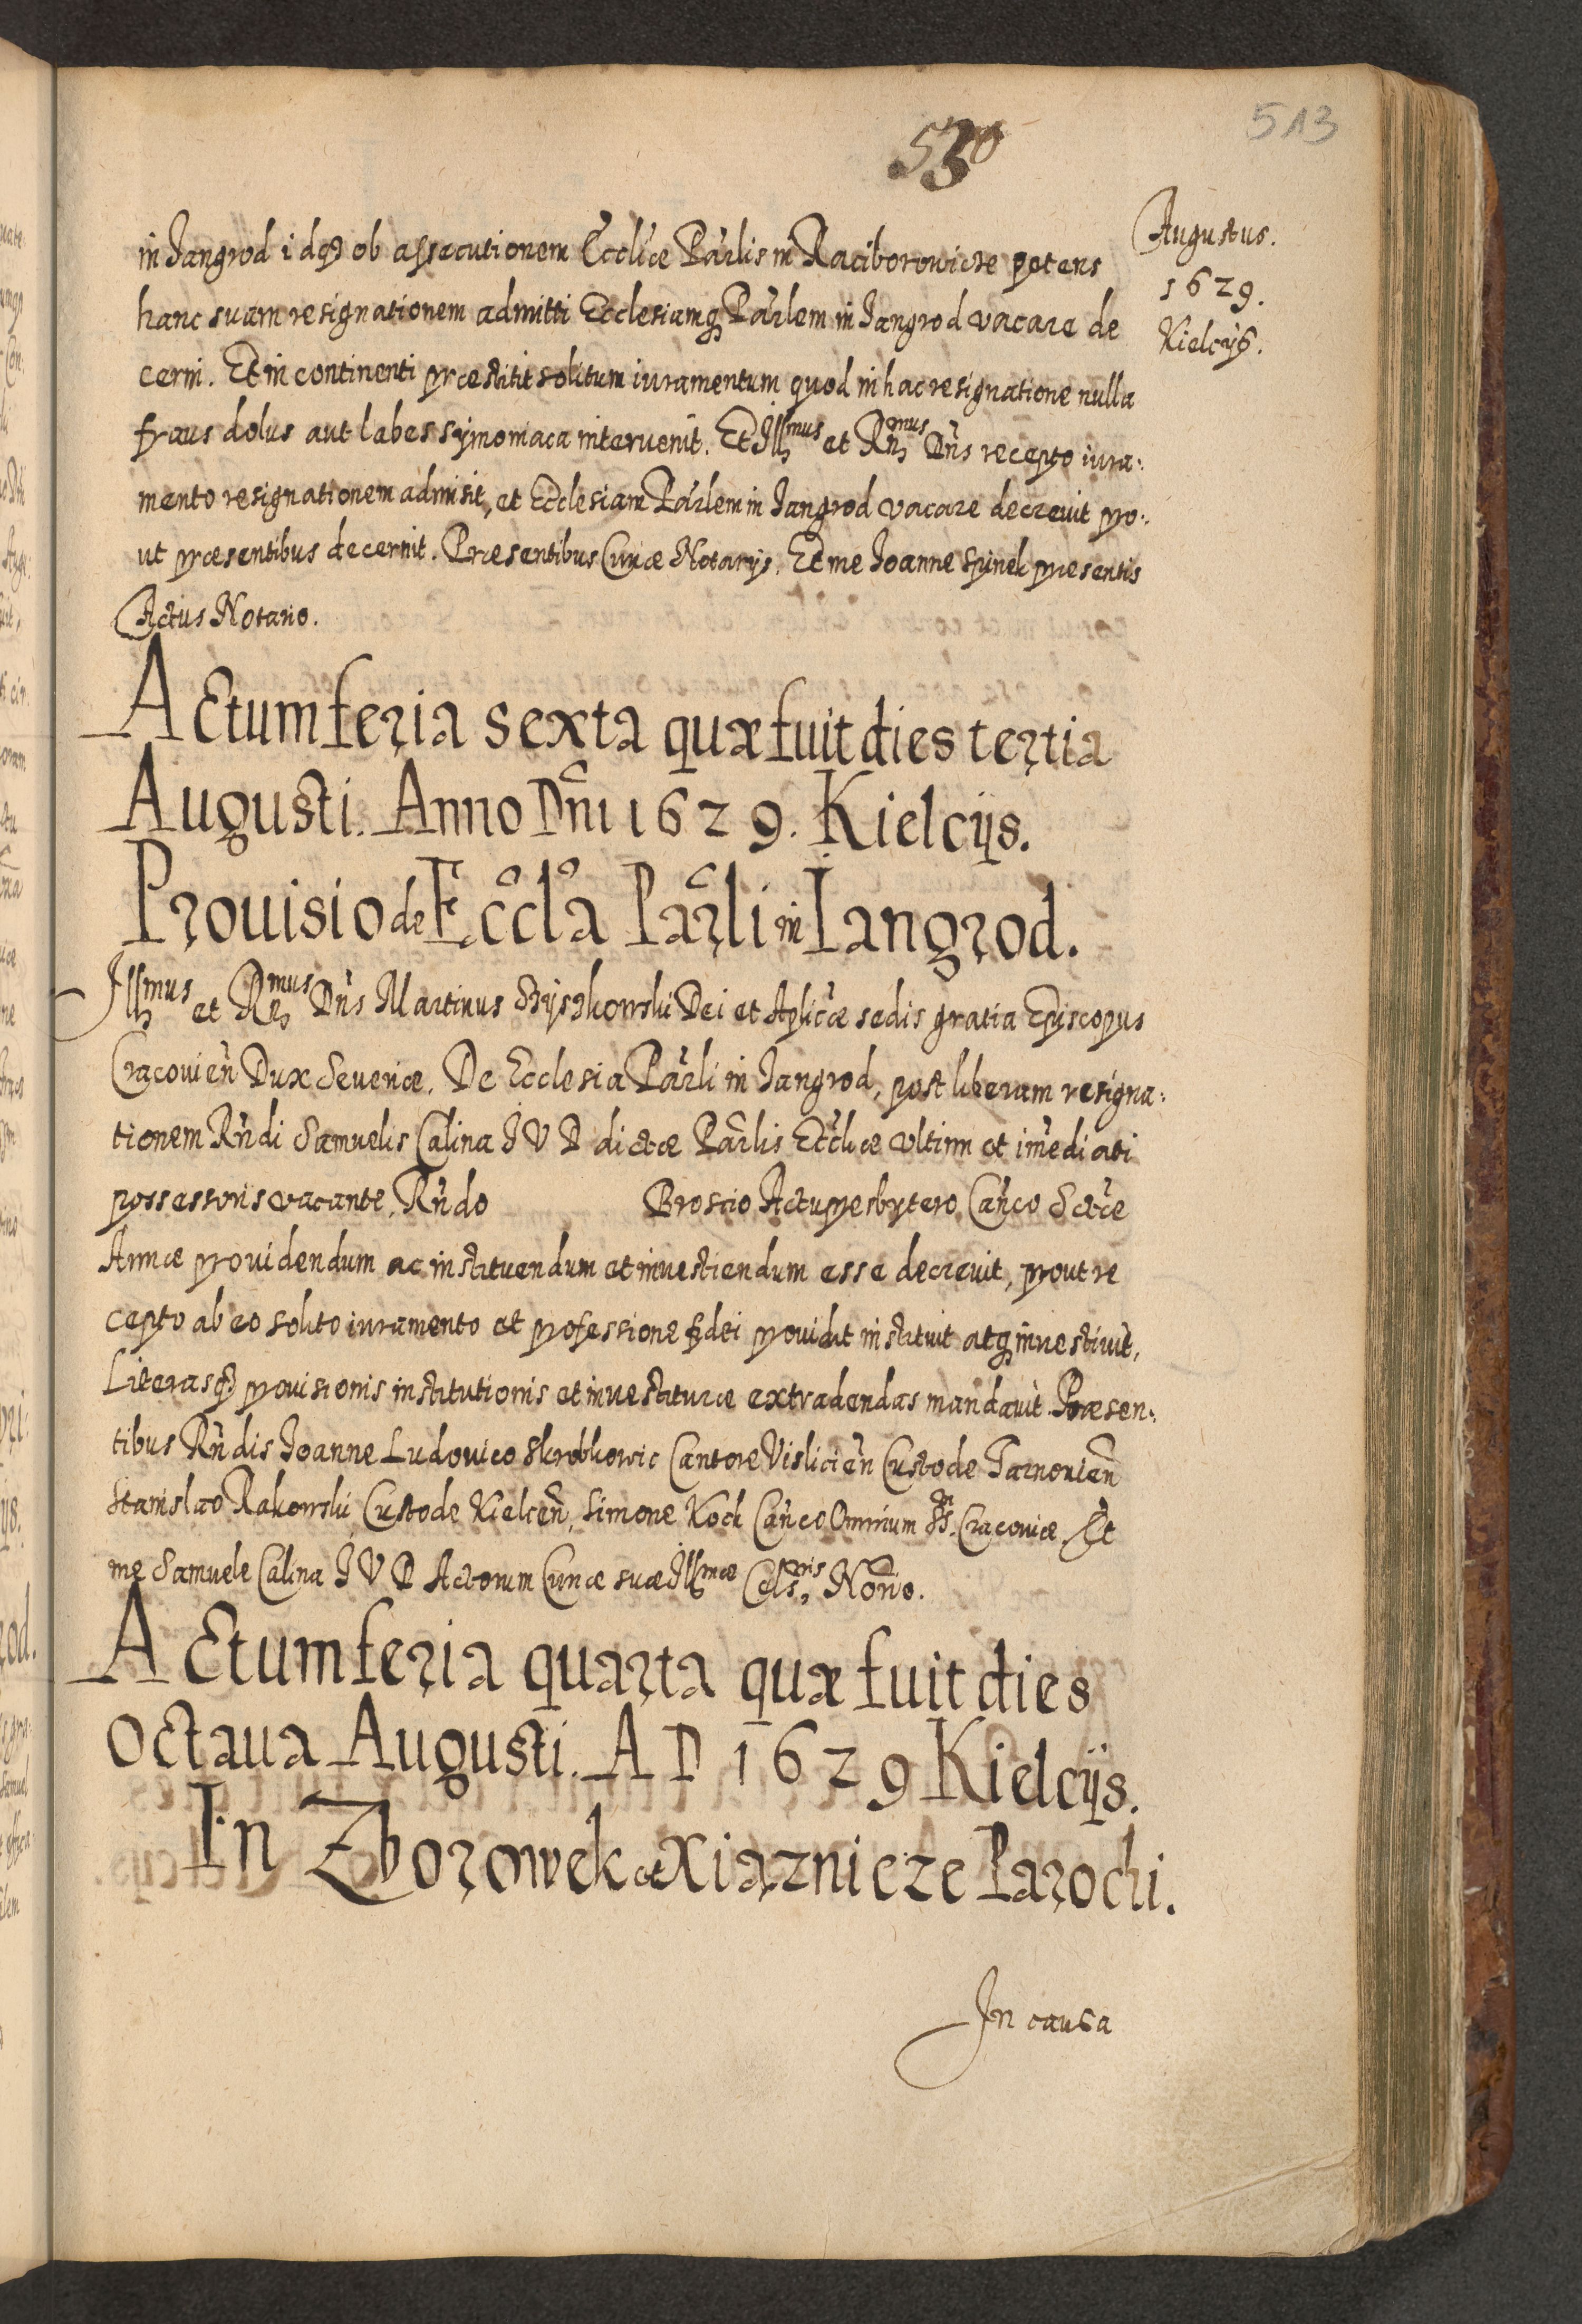 513
530
Augustus.
1629.
Kielcijs.
in Jangrod idq3 ob assecutionem Eccl̃iæ Par̃lis in Raciborowicze petens
hanc suam resignationem admitti Ecclesiamq3 Par̃lem in Jangrod vacare de
cerni. Et in continenti præstitit solitum iuramentum quod in hac resignatione nulla
fraus dolus aut labes symoniaca intervenit. Et Illmus et Rñmus Dñs recepto iura:
mento resignationem admisit, et Ecclesiam Par̃lem in Jangrod vacare decrevit pro:
ut præsentibus decernit. Præsentibus Curiæ Notarijs. Et me Joanne Spinek præsentis
Actus Notario.
Actum feria sexta quæ fuit dies tertia
Augusti. Anno Dñi 1629. Kielcijs.
Prouisio de Eccl̃a Par̃li in Jangrod.
Illmus et Rmus Dñs Martinus Szyszkowski Dei et Aplicæ sedis gratia Episcopus
Cracouieñ Dux Seueriæ. De Ecclesia Par̃li in Jangrod, post liberam resigna:
tionem Rñdi Samuelis Calina J V D dictæ Par̃lis Eccl̃iæ vltimi et im̃ediati
possessoris vacante, Rñdo Broscio Actu presbytero Cañco Sctæ
Annæ providendum ac instituendum et investiendum esse decrevit, prout re
cepto ab eo solito iuramento et professione fidei providit instituit atq3 investivit,
Literasq3 provisionis institutionis et investituræ extradendas mandavit. Præsen:
tibus Rñdis Joanne Ludovico Skrobkowic Cantore Vislicieñ Custode Tarnovieñ
Stanislao Rakowski Custode Kielceñ, Simone Koch Cañco Omnium SS. Cracoviæ Et
me Samuele Calina J V D Actorum Curiæ suæ Illmæ Celsnis Norio.
Actum feria quarta quæ fuit dies
octaua Augusti. A D 1629 Kielcijs.
In Zborowek et Xiaznicze Parochi.
In causa